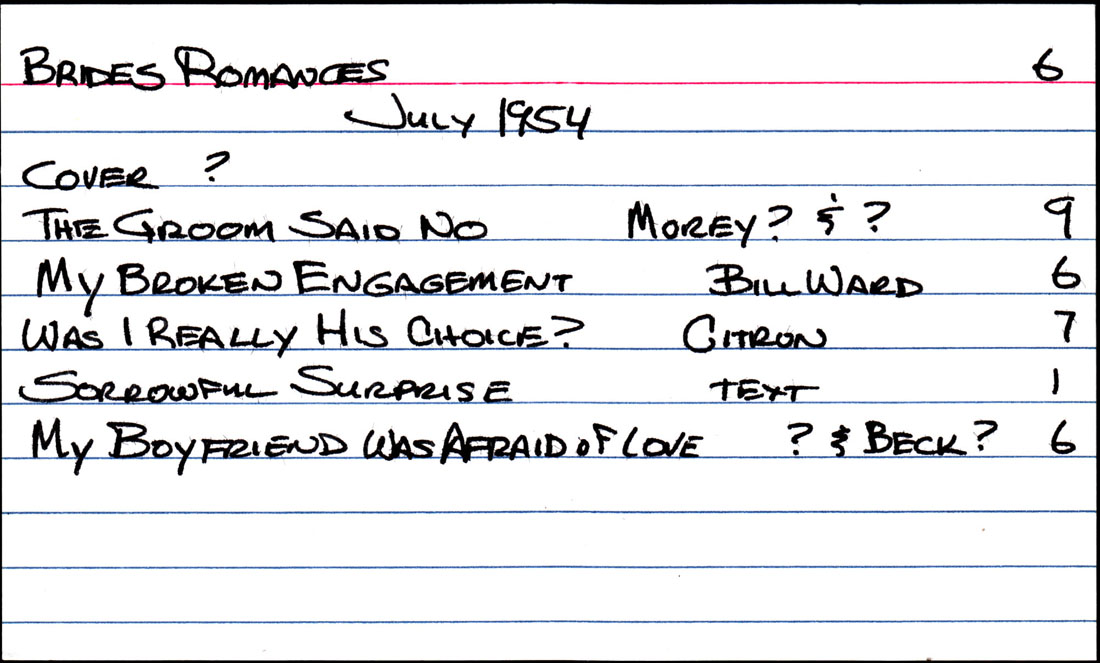 BRIDES ROMANCES 6
JULY 1954
COVER ?
THE GROOM SAID NO MOREY? & ? 9
MY BROKEN ENGAGEMENT BILL WARD 6
WAS I REALLY HIS CHOICE? CITRON 7
SORROWFUL SURPRISE TEXT 1
MY BOYFRIEND WAS AFRAID OF LOVE ? & BECK? 6